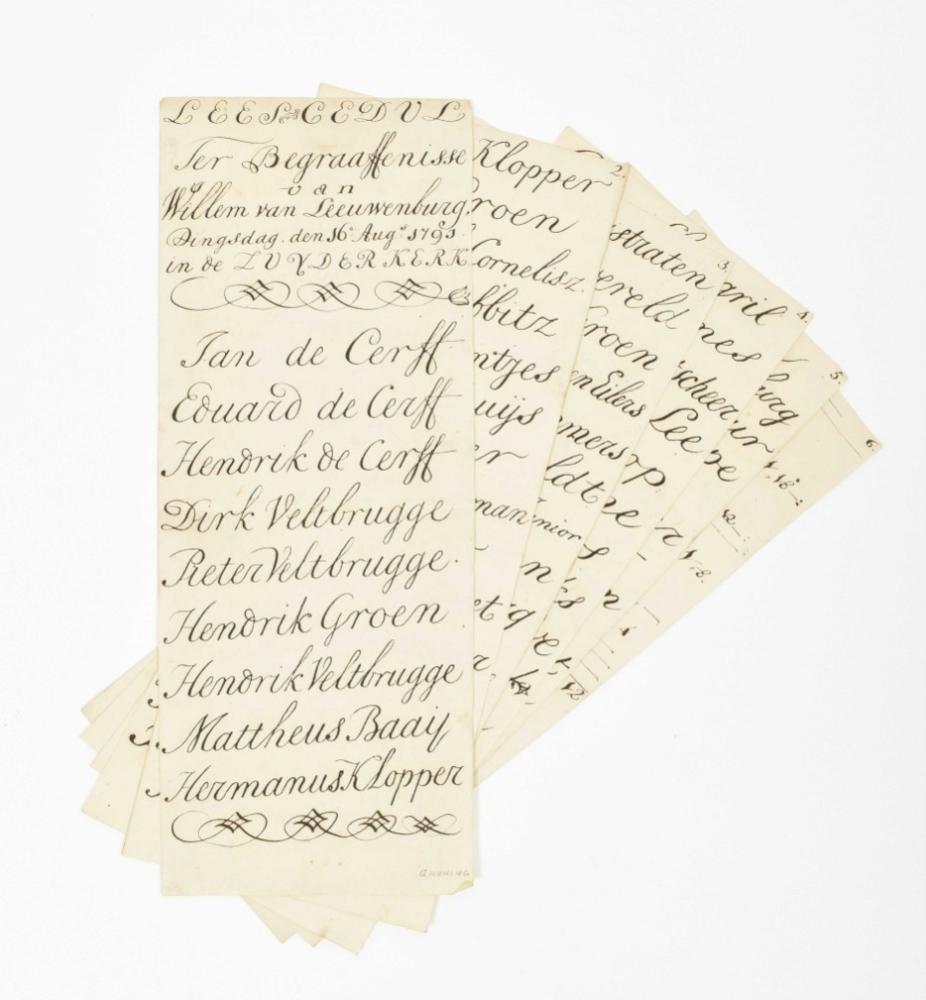 LEES=CEDUL
Ter Begraaffenisse
van
Willem van Leeuwenburg,
Dingsdag. den 16e Augs 1791.
in de ZUYDERKERK
Jan de Cerff
Eduard de Cerff
Hendrik de Cerff
Dirk Veltbrugge
Pieter Veltbrugge.
Hendrik Groen
Hendrik Veltbrugge
Mattheus Baaij
Hermanus Klopper
2.
Klopper
roen
Cornelisz.
bbitz
ntjes
uijs
er
man
3.
straten
ereld
Groen
en Eilers
mers
ldt
nior
n
4.
aril
nes
scheer,
Lee
p
e
s
5.
urg
ur
ne
r
n
6.
12